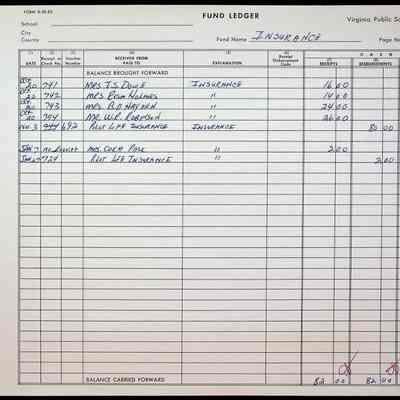 FORM
FUND LEDGER
Virginia Public Sc
School
City
County
Fund Name INSURANCE
Page No
CASH
(1) (2) (3) (4) (5) (6) (7) (8)
DATE Receipt or Check No. Voucher Number RECEIVED FROM PAID TO EXPLANATION Receipt Disbursement Code RECEIPTS DISBURSEMENTS
BALANCE BROUGHT FORWARD
20 741 MRS. J.S. INSURANCE 16 00
20 742 MRS. HOLMES " 14 00
20 743 MRS. " 24 00
20 744 MR. W.R. ROBINSON " 26 00
Nov. 3 692 PILOT LIFE INSURANCE INSURANCE 80 00
JAN 7 NO RECEIPT MRS. CORA " 2 00
JAN 724 PILOT LIFE INSURANCE " 2 00
BALANCE CARRIED FORWARD 82 00 82 00